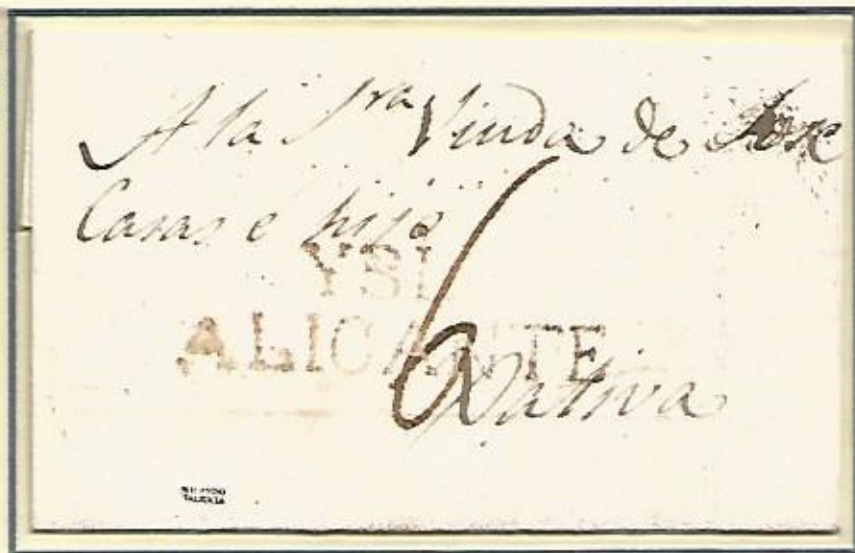 A la Sra Viuda de Jose
Casas e hijo
6
YSL
ALICANTE
Xativa